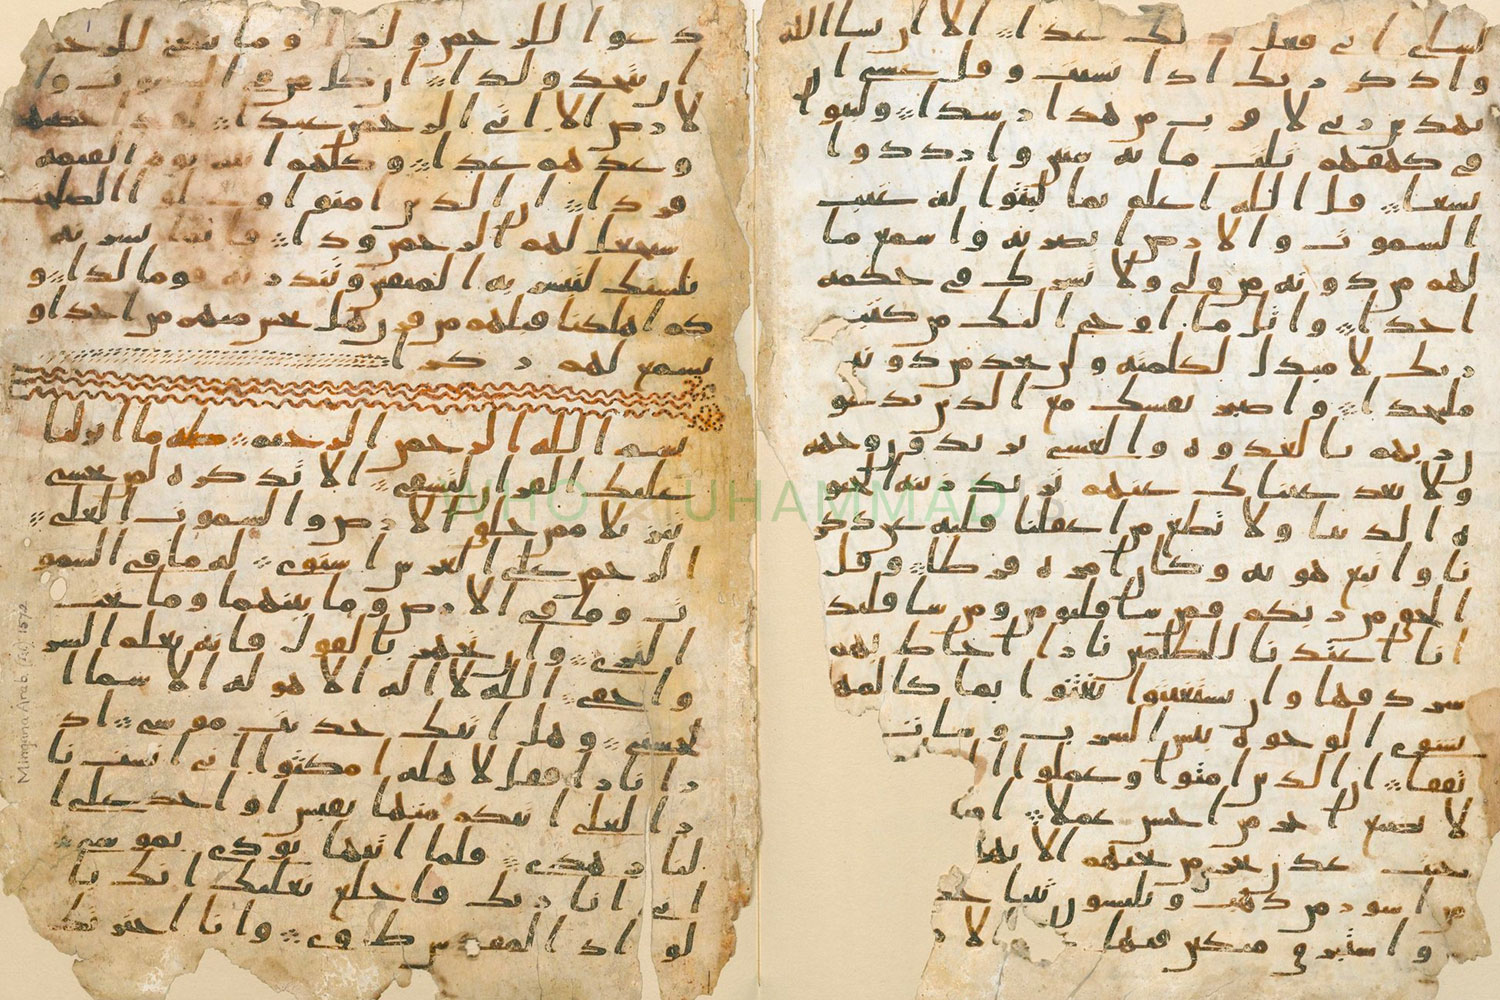 لشاي اني فعل ذلك غدا الا ان يشا الله
واذكر ربك اذا نسيت وقل عسى ان
يهدين ربي لاقرب من هذا رشدا ولبثوا
في كهفهم ثلث مائه سنين وازددوا
تسعا قل الله اعلم بما لبثوا له غيب
السموت والارض ابصر به واسمع ما
لهم من دونه من ولي ولا يشرك في حكمه
احدا واتل ما اوحي اليك من كتب
ربك لا مبدل لكلمته ولن تجد من دونه
ملتحدا واصبر نفسك مع الذين يدعو
ن ربهم بالغدوه والعشي يريدون وجهه
ولا تعد عيناك عنهم تريد زينه الحيو
ه الدنيا ولا تطع من اغفلنا قلبه عن ذكر
نا واتبع هويه وكان امره فرطا وقل
الحق من ربكم فمن شا فليومن ومن شا فليك
انا اعتدنا للظلمين نارا احاط بهم
سردقها وان يستغيثوا يغثوا بما كالمه
يشوي الوجوه بئس الشرب وسات
تفقا ان الذين امنوا وعملوا ا
لا نضيع اجر من احسن عملا او
جنت عدن تجري من تحتهم الانها
من اسور من ذهب ويلبسون ثيابا خض
واستبرق متكين فيها
دعوا للرحمن ولدا وما ينبغي للرحمن
ان يتخذ ولدا ان كل من في السموت وا
لارض الا اتي الرحمن عبدا لقد احصيهم
وعدهم عدا وكلهم اتيه يوم القيمه
فردا ان الذين امنوا وعملوا الصلحت
سيجعل لهم الرحمن ودا فانما يسرنه
بلسنك لتبشر به المتقين وتنذر به قوما لدا و
كم اهلكنا قبلهم من قرن هل تحس منهم من احد او
تسمع لهم ركزا
بسم الله الرحمن الرحيم طه ما انزلنا
عليك القران لتشقى الا تذكره لمن يخشى
تنزيلا ممن خلق الارض والسموت العلى
الرحمن على العرش استوى له ما في السمو
ت وما في الارض وما بينهما وما تحت
الثرى وان تجهر بالقول فانه يعلم السر
واخفى الله لا اله الا هو له الاسما ا
لحسنى وهل اتيك حديث موسى اذ
را نارا فقل لاهله امكثوا اني انست نا
را لعلي اتيكم منها بقبس او اجد على ا
لنار هدى فلما اتيها نودي يموسى
اني انا ربك فاخلع نعليك انك با
لواد المقدس طوى وانا اخترتك
Mingana Arab (Isl) 1572
WHO IS MUHAMMAD